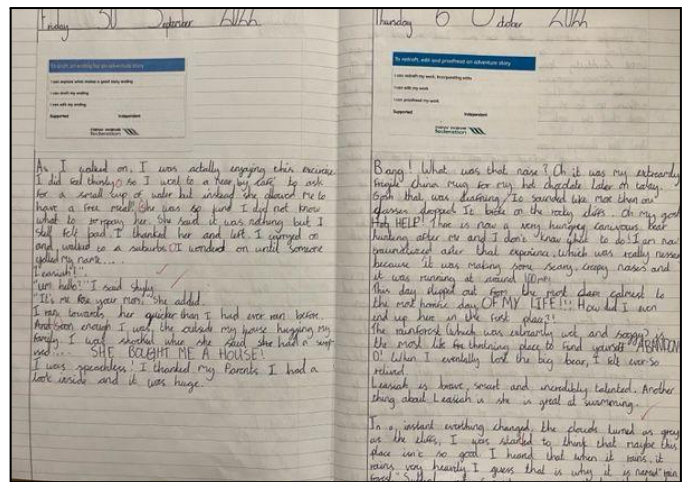 Friday 30 September 2022
To draft an ending for an adventure story
I can explore what makes a good story ending
I can draft my ending
I can edit my ending
Supported Independent
federation
As I walked on, I was actally enjoying this
I did feel thirsty so I went to a near by cafe to ask
for a small cup of water but instead she allowed me to
have a free meal. She was so kind I did not know
what to She said it was nothing but I
still felt bad. I thanked her and left. I carryed on
and walked to a suburbs. I wonderd on until someone
yelled my name....
"Leasiah!".
"um hello!" I said shyly.
"It's me Rose your mom." She added.
I ran towards her quicker than I had ever ran before.
And soon enough I was, the outside my house hugging my
family. I was shocked when she said she had a
SHE BOUGHT ME A HOUSE!
I was speachless! I thanked my Parents. I had a
look inside and it was huge.
Thursday 6 October 2022
To redraft, edit and proofread an adventure story
I can redraft my work, incorporating edits
I can edit my work
I can proofread my work
Supported Independent
federation
Bang! What was that noise? Oh it was my extreamly
fragile china mug for my hot chocolate later on today.
Gosh that was deafning. It sounded like mor then on
glasses dropped. It broke on the rocky cliffs. Oh my gosh
HELP! There is now a very hungrey bear
hunting after me and I don't know what to do! I am now
after that experience, which was really
because it was making some scary, creepy noises and
it was running at around
This day flipped out from the most calmest to
the most horrific day OF MY LIFE!!! How did I even
end up here in the first place?!
The rainforest (which was extreamly wet and soggy) is
the most life thretning place to find yourself ABANDON
D! When I eventally lost the big bear, I felt ever so
relived.
Leasiah is brave, smart and incredibly talented. Another
thing about Leasiah is she is great at swimming.
In a, instant everthing changed, the clouds turned as grey
as the cliffs, I was started to think that maybe this
place isn't so good. I heard that when it rains, it
rains very heavily. I guess that is why it is named "rain